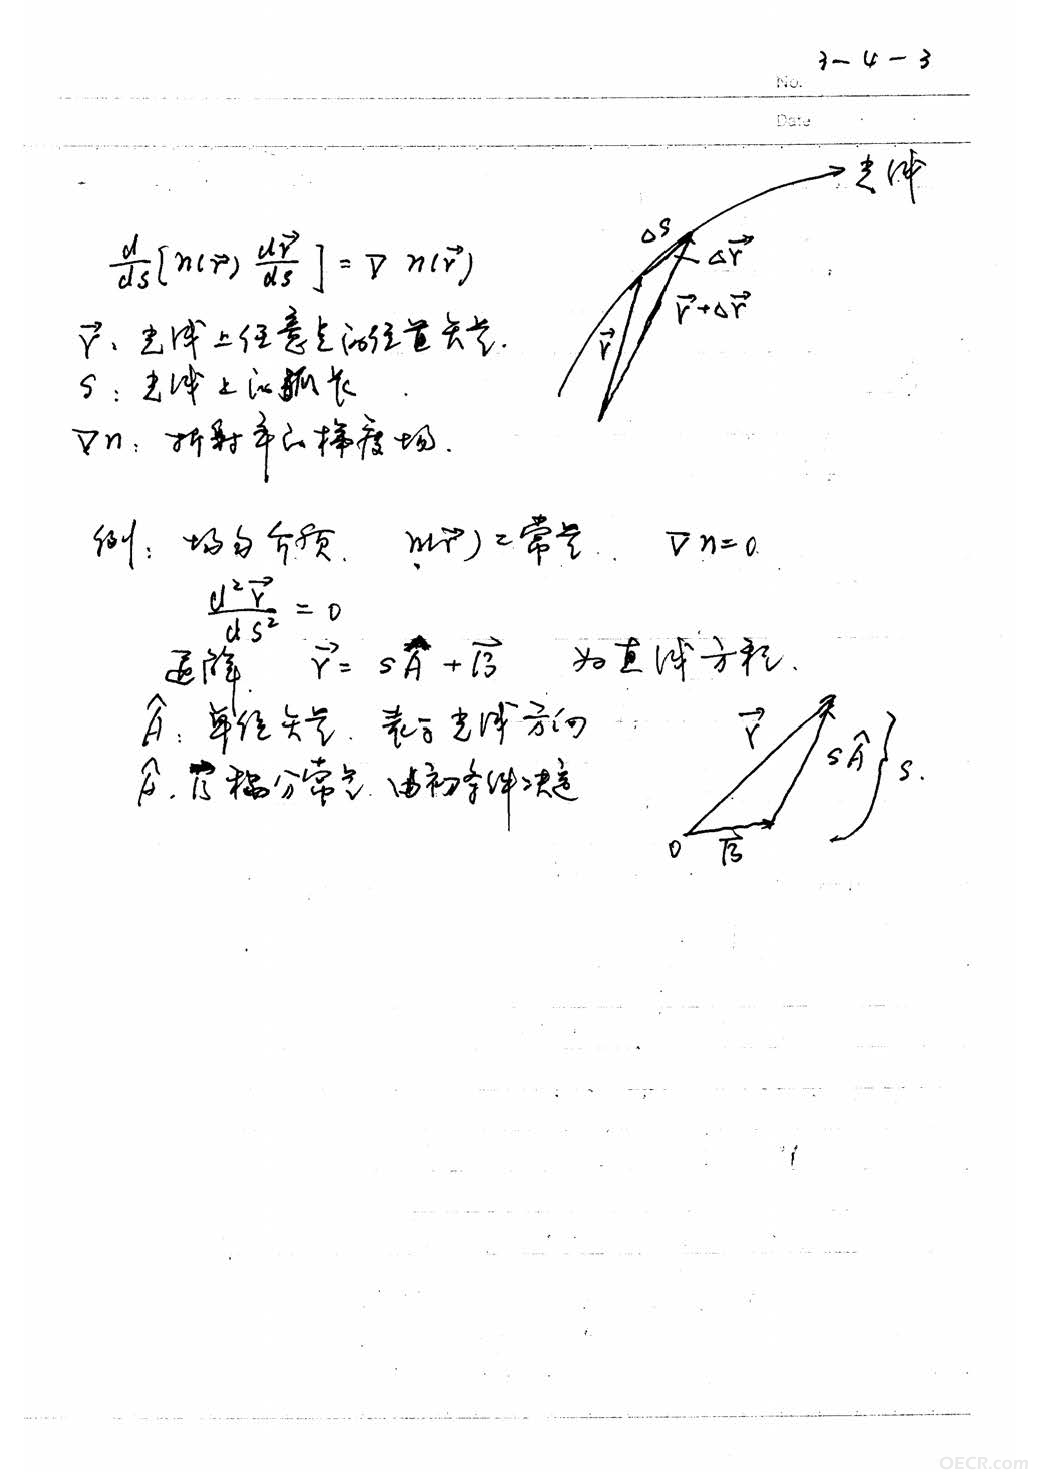 3-4-3
No.
Date
光线
ΔS
Δr⃗
r⃗+Δr⃗
r⃗
d/ds[n(r⃗) dr⃗/ds] = ∇ n(r⃗)
r⃗: 光线上任意点的位置矢量.
S: 光线上的弧长.
∇n: 折射率的梯度场.
例: 均匀介质. n(r⃗)=常量. ∇n=0.
d²r⃗/ds² = 0
通解 r⃗= sÂ + B⃗ 为直线方程.
Â: 单位矢量. 表示光线方向
Â. B⃗ 积分常量. 由初条件决定
r⃗
sÂ
s.
O
B⃗
OECR.com